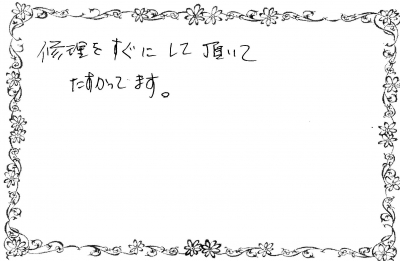 修理をすぐにして頂いて
たすかってます。